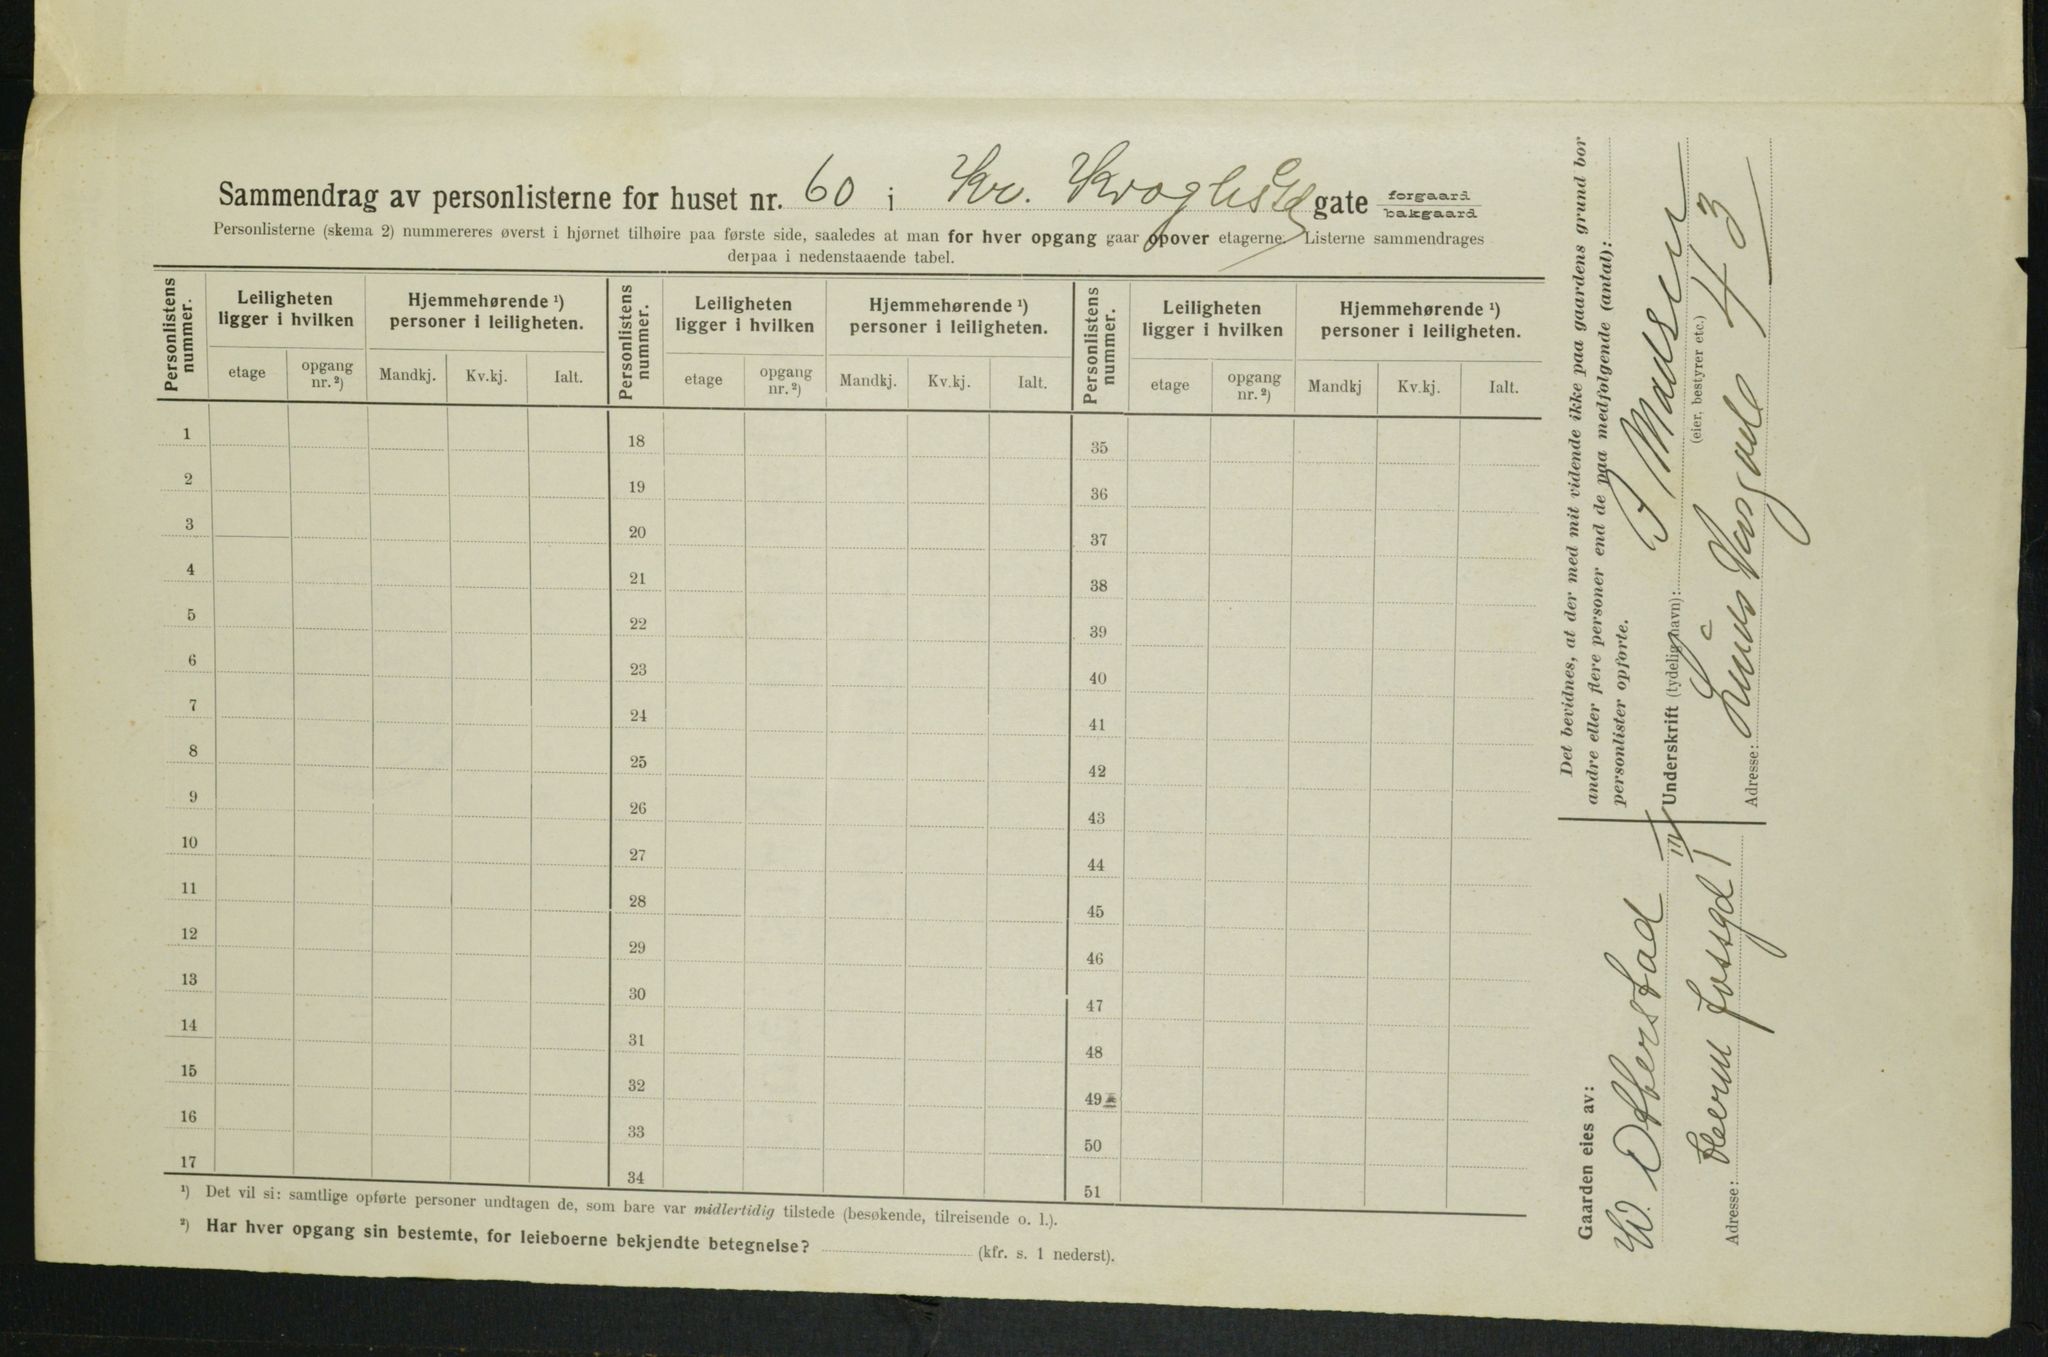 Sammendrag av personlisterne for huset nr. 60 i Kr. Kroghs Gd gate forgaard bakgaard
Personlisterne (skema 2) nummereres øverst i hjørnet tilhøire paa første side, saaledes at man for hver opgang gaar opover etagerne. Listerne sammendrages
derpaa i nedenstaaende tabel.
Personlistens nummer. Leiligheten ligger i hvilken Hjemmehørende ¹) personer i leiligheten. Personlistens nummer. Leiligheten ligger i hvilken Hjemmehørende ¹) personer i leiligheten. Personlistens nummer. Leiligheten ligger i hvilken Hjemmehørende ¹) personer i leiligheten.
etage opgang nr.²) Mandkj. Kv.kj. Ialt. etage opgang nr.²) Mandkj. Kv.kj. Ialt. etage opgang nr.²) Mandkj Kv.kj. Ialt.
1 18 35
2 19 36
3 20 37
4 21 38
5 22 39
6 23 40
7 24 41
8 25 42
9 26 43
10 27 44
11 28 45
12 29 46
13 30 47
14 31 48
15 32 49
16 33 50
17 34 51
¹) Det vil si: samtlige opførte personer undtagen de, som bare var midlertidig tilstede (besøkende, tilreisende o. l.).
²) Har hver opgang sin bestemte, for leieboerne bekjendte betegnelse? (kfr. s. 1 nederst).
Det bevidnes, at der med mit vidende ikke paa gaardens grund bor
andre eller flere personer end de paa medfølgende (antal):
personlister opførte.
Underskrift (tydelig navn): Madsen
(eier, bestyrer etc.)
Adresse: 43
Gaarden eies av:
W. Offerstad
Adresse: Heern fossgd 1